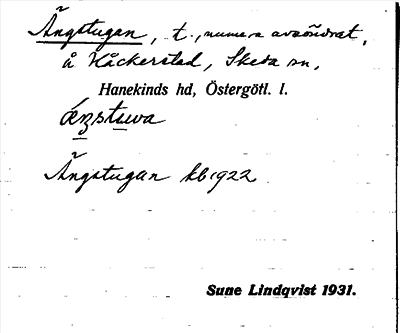 Ängstugan, t., numera avsöndrat,
å Håckerstad, Skeda sn,
Hanekinds hd, Östergötl. l.
æŋstuwa
Ängstugan kb 1922
Sune Lindqvist 1931.